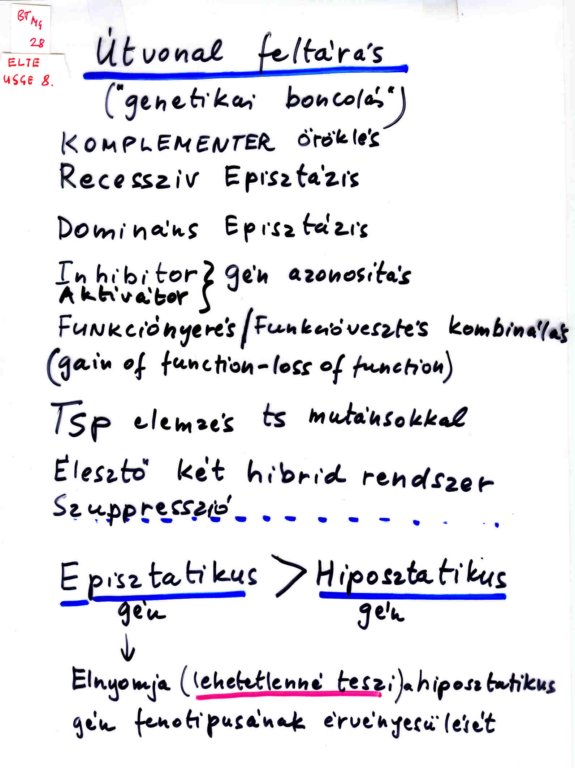 BT Mg
28
ELTE
USGE 8.
Útvonal feltárás
("genetikai boncolás")
KOMPLEMENTER öröklés
Recesszív Episztázis
Domináns Episztázis
Inhibitor } gén azonosítás
Aktivátor
Funkciónyerés/Funkcióvesztés kombinálás
(gain of function-loss of function)
Tsp elemzés ts mutánsokkal
Élesztő két hibrid rendszer
Szuppresszió
Episztatikus > Hiposztatikus
gén gén
↓
Elnyomja (lehetetlenné teszi) a hiposztatikus
gén fenotípusának érvényesülését